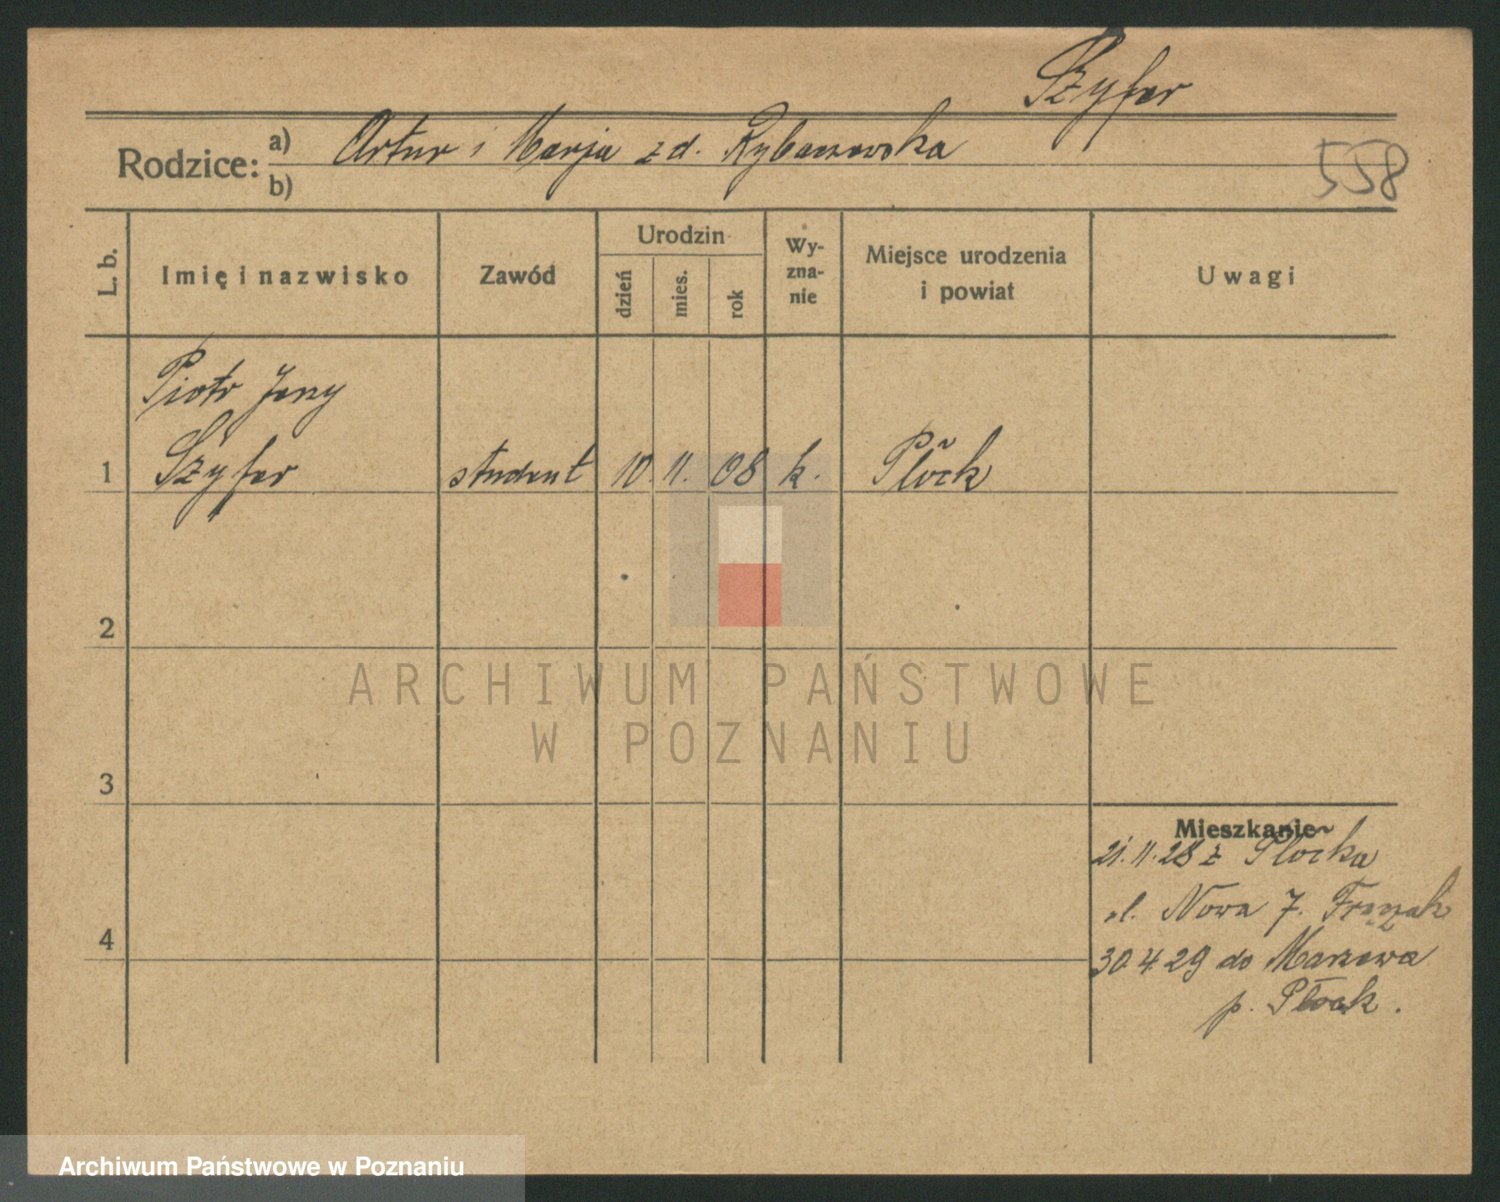 Szyfer
Rodzice: a) Artur i Marja z d. Rybaczewska
b)
558
L. b.
Imię i nazwisko
Zawód
Urodzin
dzień
mies.
rok
Wy-
zna-
nie
Miejsce urodzenia
i powiat
Uwagi
Piotr Jerzy
1 Szyfer student 10. 11. 08 k. Płock
2
3
4
Mieszkanie
21.11.28 z Płocka
ul. Nowa 7.
30.4.29 do
p. Płock.
ARCHIWUM PAŃSTWOWE
W POZNANIU
Archiwum Państwowe w Poznaniu